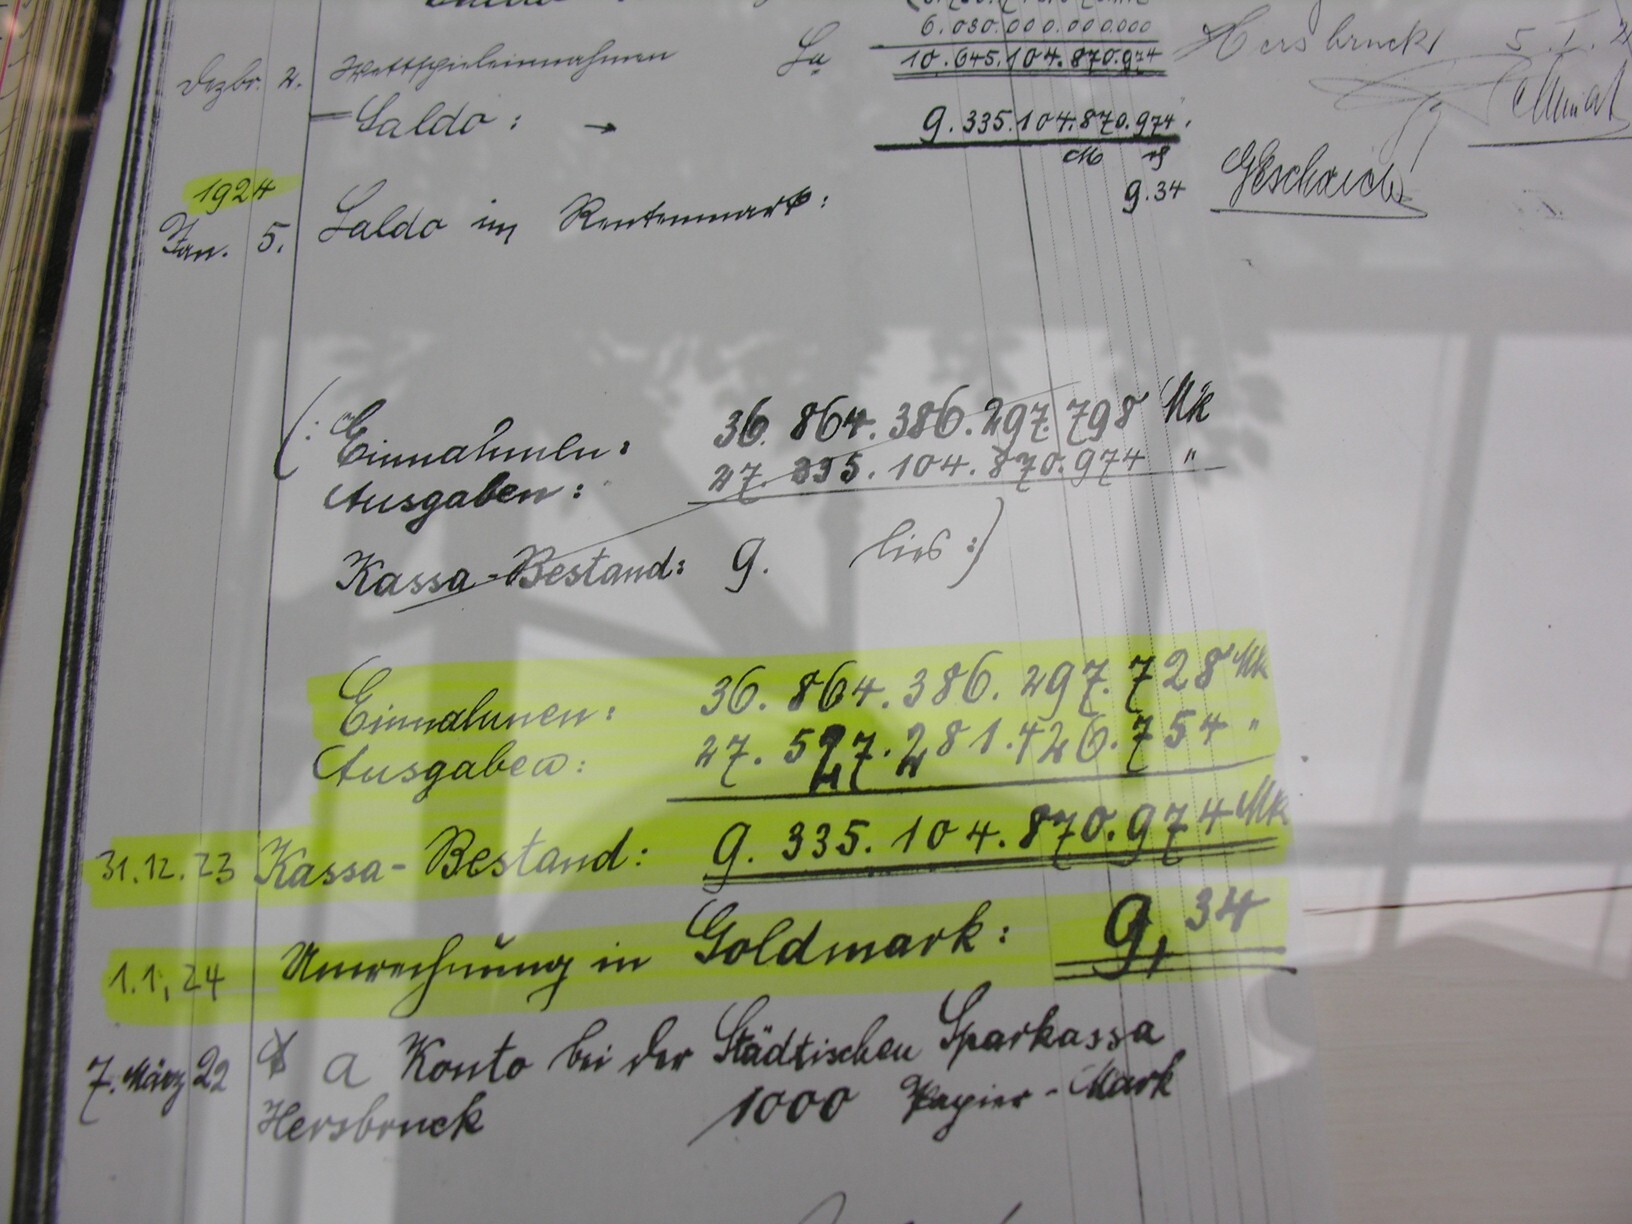 6.030.000.000.000
Dezbr. 2. Wettspieleinnahmen Sa 10.645.104.870.974
Saldo: → 9.335.104.870.974.
M
1924 9.34
Jan. 5. Saldo in Rentenmark:
Hersbruck 5. I. 2
(: Einnahmen: 36.864.386.297.798 Mk
Ausgaben: 27.335.104.870.974 "
Kassa-Bestand: 9. lies:)
Einnahmen: 36.864.386.297.728 Mk
Ausgaben: 27.527.281.426.754 "
31.12.23 Kassa-Bestand: 9.335.104.870.974 Mk
1.1.24 Umrechnung in Goldmark: 9,34
7. März 22 a Konto bei der Städtischen Sparkassa
Hersbruck 1000 Papier-Mark